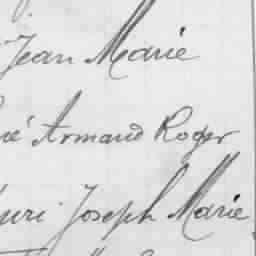 Jean Marie
né Armand Roger
Joseph Marie